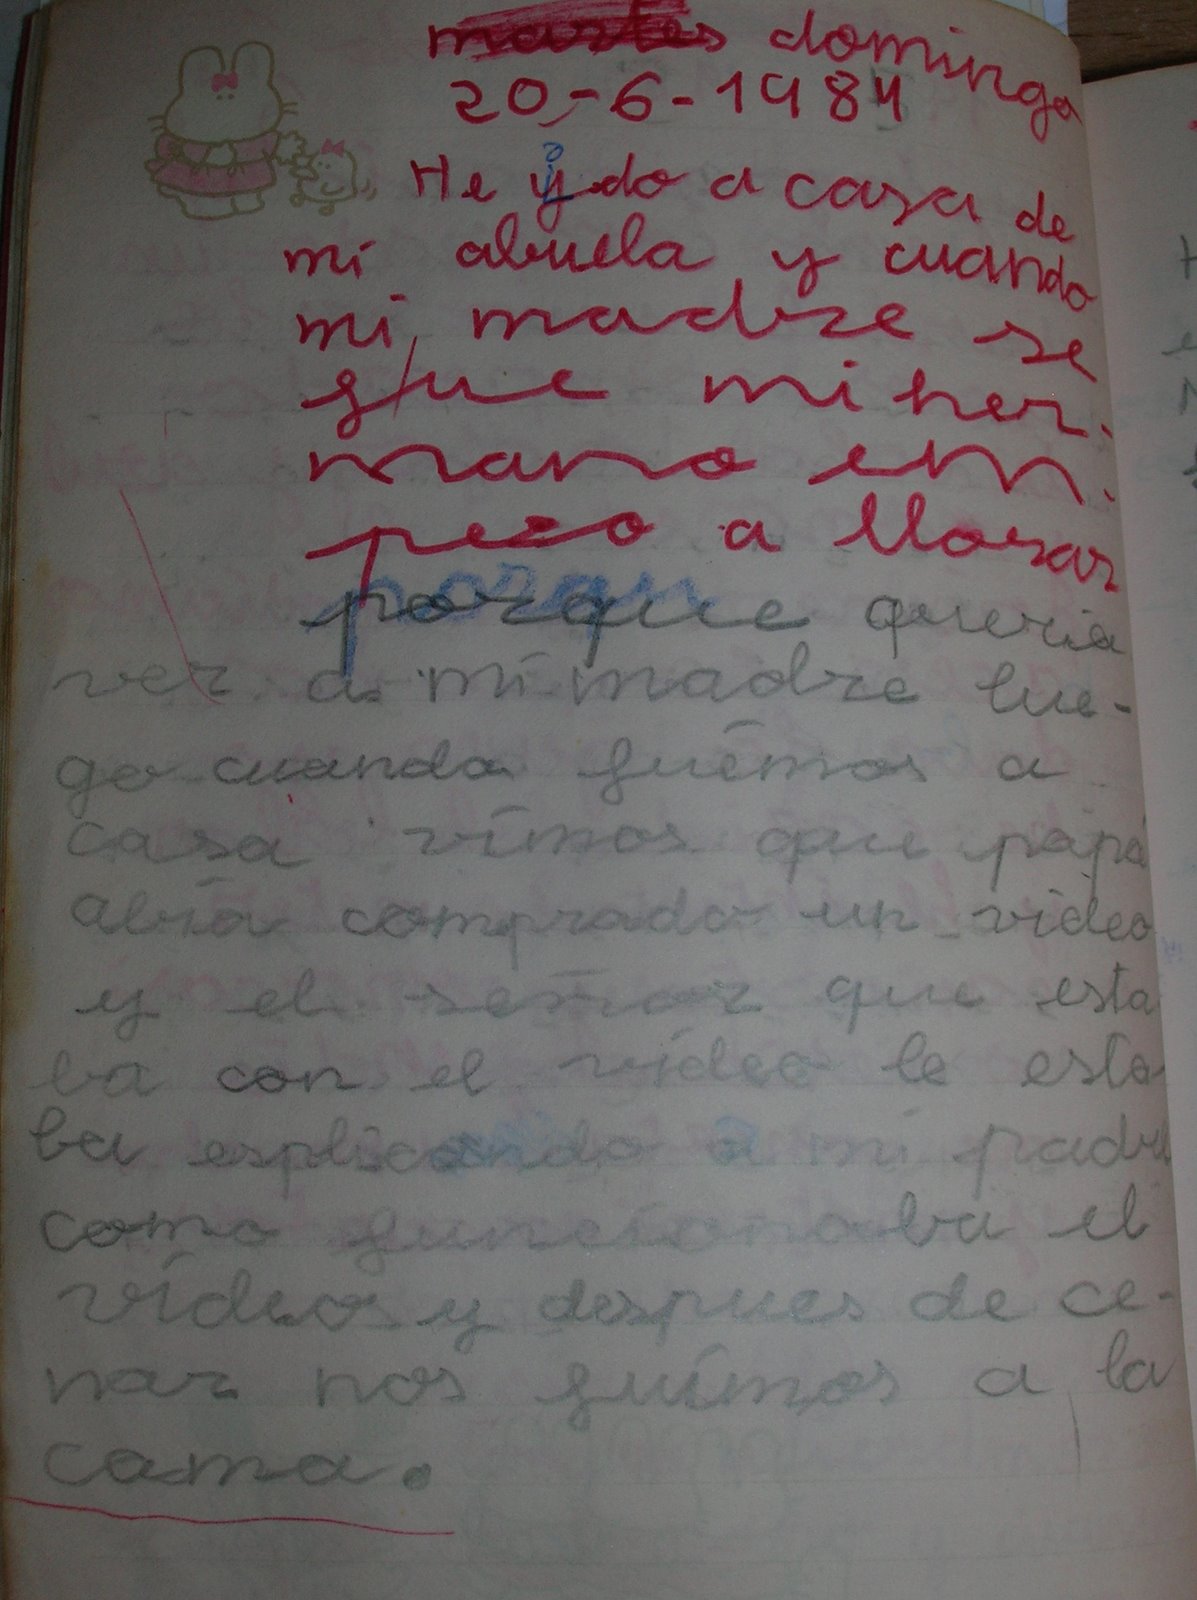 martes domingo
20-6-1984
He ydo a casa de
mi abuela y cuando
mi madre se
fue mi her-
mano em-
pezo a llorar
porque queria
ver a mi madre lue-
go cuando fuémos a
casa vímos que papá
abía comprado un video
y el señor que esta
ba con el vídeo le esta
ba esplicando a mi padre
como funcionaba el
vídeo y despues de ce-
nar nos fuímos a la
cama.